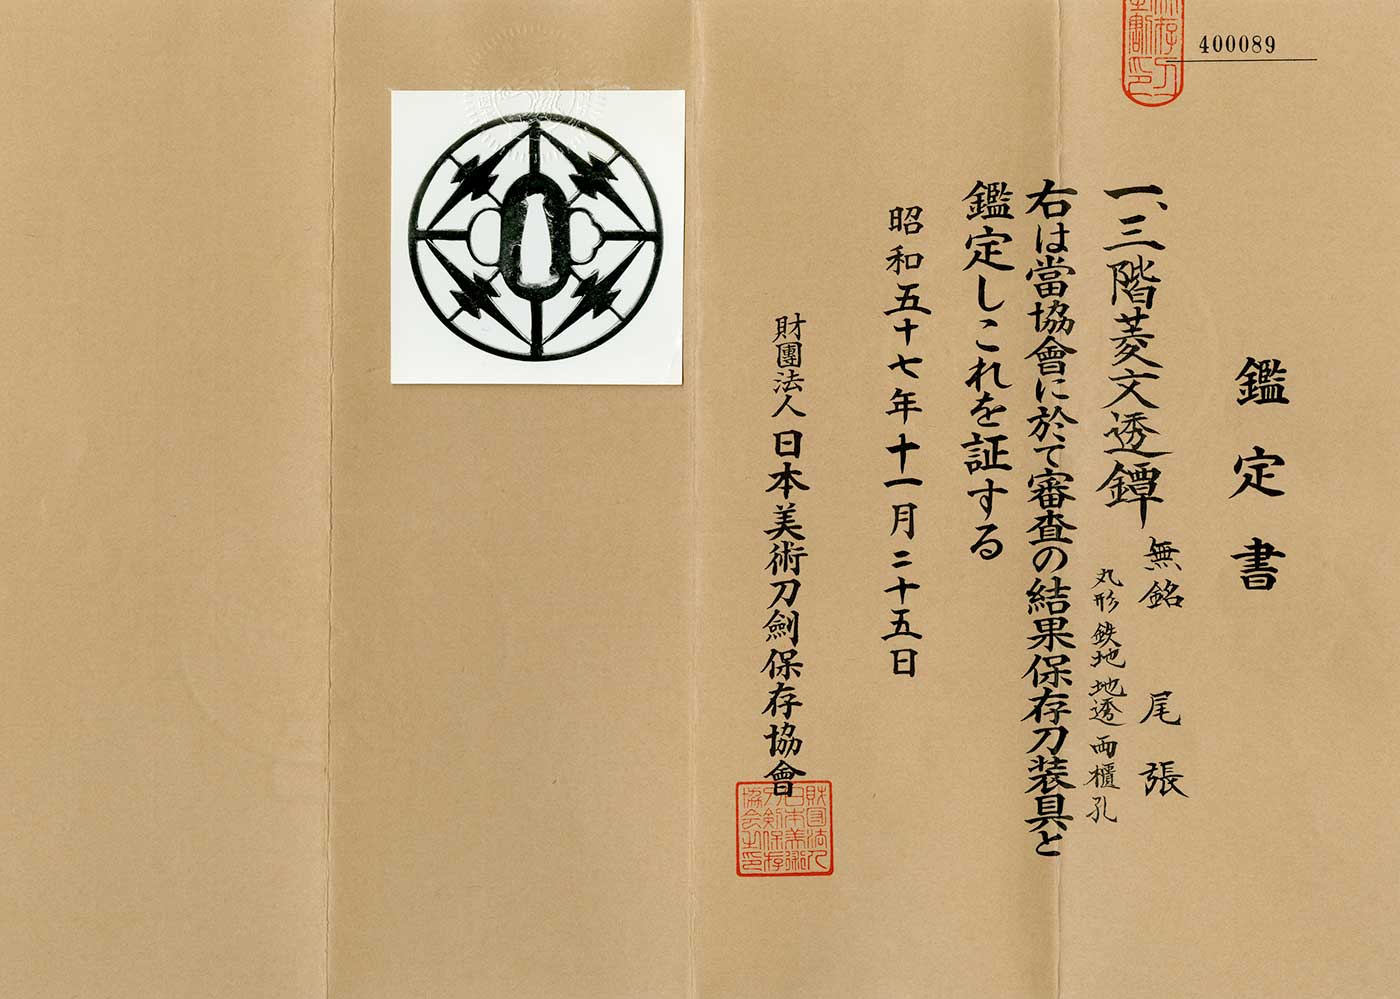 400089
鑑定書
一、三階菱文透鐔
無銘 尾張
丸形 鉄地 地透 両櫃孔
右は當協會に於て審査の結果保存刀装具と
鑑定しこれを証する
昭和五十七年十一月二十五日
財團法人日本美術刀劍保存協會
財団法人
日本美術
刀剣保存
協会之印